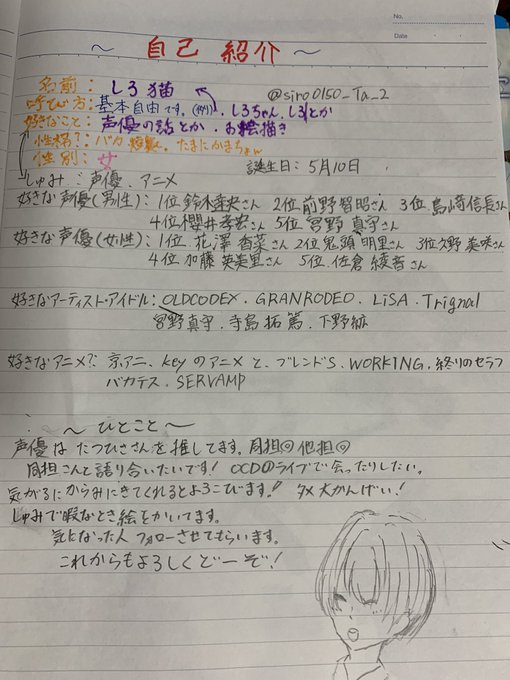 No.
Date
～ 自己 紹介 ～
名前： しろ猫 @siro0150_Ta_2
呼び方：基本自由です。(例) しろちゃん、しろとか
好きなこと：声優の話とか・お絵描き
性格?：バカ たまにかまちょw
性別：女 誕生日：5月10日
しゅみ：声優、アニメ
好きな声優(男性)：1位 鈴木達央さん 2位 前野智昭さん 3位 島﨑信長さん
4位 櫻井孝宏さん 5位 宮野真守さん
好きな声優(女性)：1位 花澤香菜さん 2位 鬼頭明里さん 3位 久野美咲さん
4位 加藤英美里さん 5位 佐倉綾音さん
好きなアーティスト・アイドル：OLDCODEX、GRANRODEO、LiSA、Trignal
宮野真守、寺島拓篤、下野紘
好きなアニメ?：京アニ、keyのアニメと、ブレンドS、WORKING、終りのセラフ
バカテス、SERVAMP
～ ひとこと ～
声優はたつひささんを推してます。同担◎他担◎
同担さんと語り合いたいです! OCDのライブで会ったりしたい。
気がるにからみにきてくれるとよろこびます!! タメ大かんげい!
しゅみで暇なとき絵をかいてます。
気となった人フォローさせてもらいます。
これからもよろしくどーぞ!